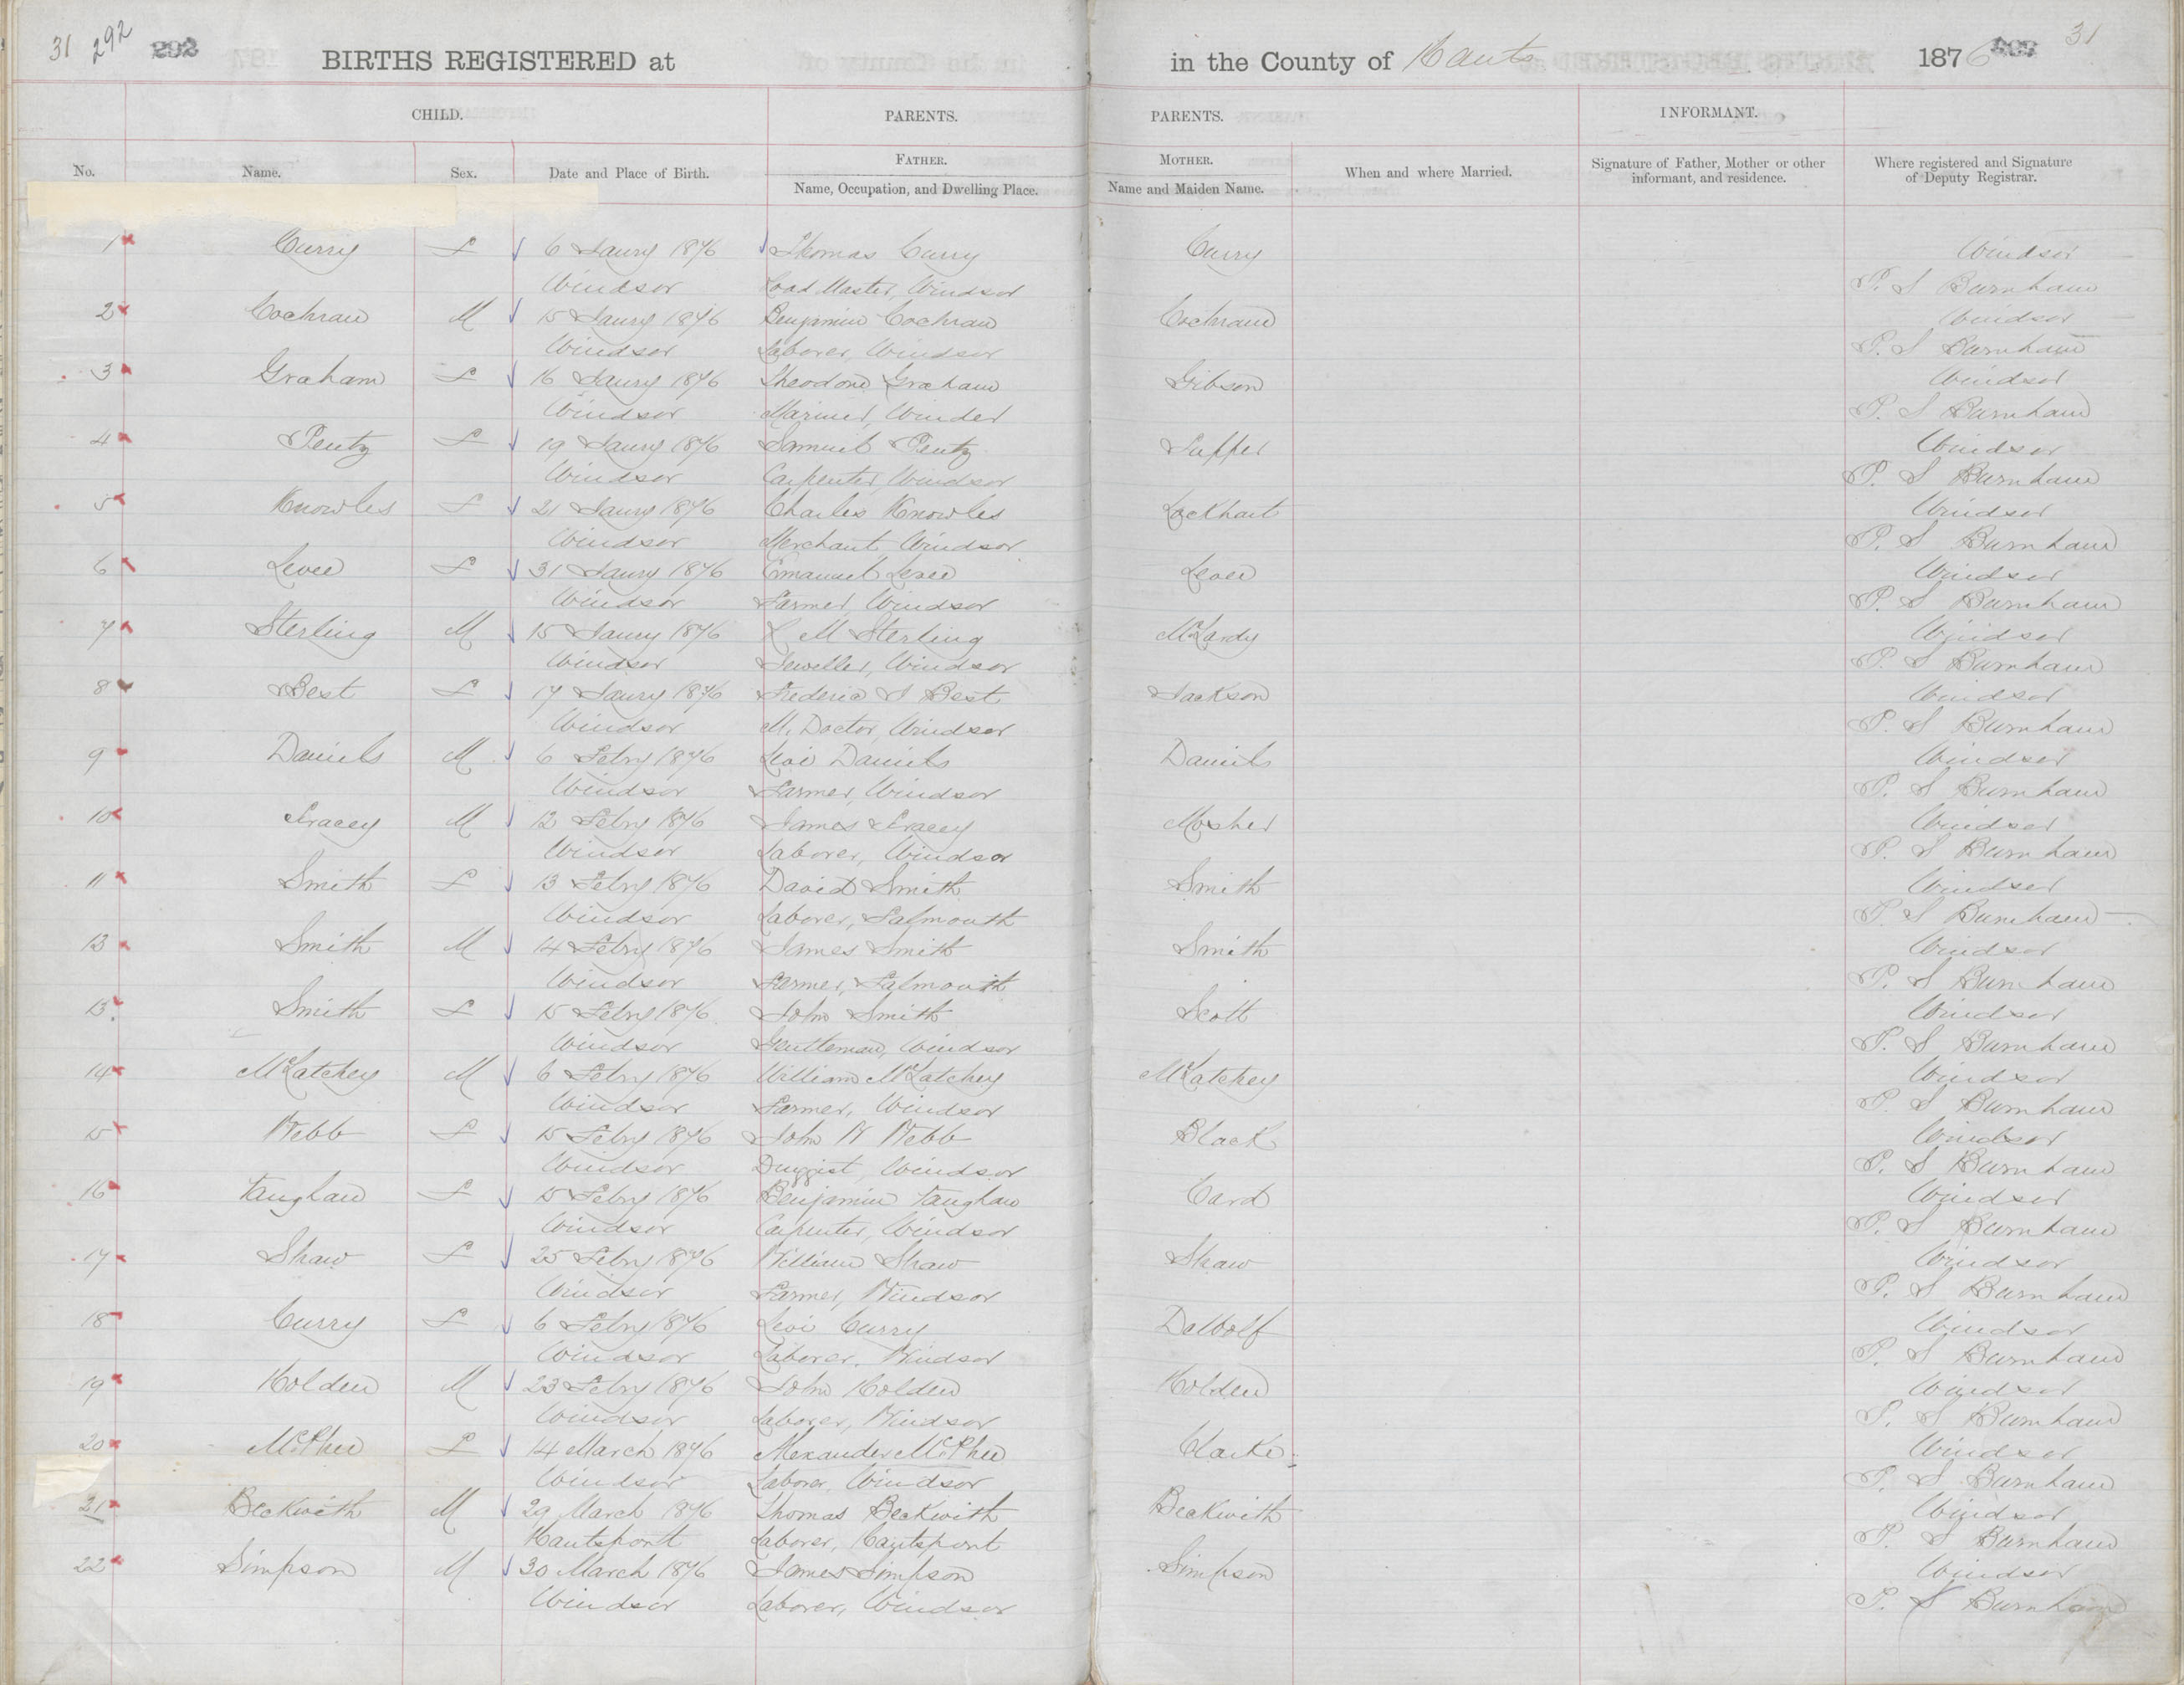 31 292 292
BIRTHS REGISTERED at in the County of Hants 1876 31
CHILD. PARENTS. PARENTS. INFORMANT.
No. Name. Sex. Date and Place of Birth. FATHER. Name, Occupation, and Dwelling Place. MOTHER. Name and Maiden Name. When and where Married. Signature of Father, Mother or other informant, and residence. Where registered and Signature of Deputy Registrar.
1 Curry F 6 Jaury 1876 Thomas Curry Curry Windsor
Windsor Road Master, Windsor P. S Burnham
2 Cochran M 15 Jaury 1876 Benjamin Cochran Cochran Windsor
Windsor Laborer, Windsor P. S Burnham
3 Graham F 16 Jaury 1876 Theodore Graham Gibson Windsor
Windsor Mariner, Windsor P. S Burnham
4 Pentz F 19 Jaury 1876 Samuel Pentz Windsor
Windsor Carpenter, Windsor P. S Burnham
5 Knowles F 21 Jaury 1876 Charles Knowles Lockhart Windsor
Windsor Merchant, Windsor P. S Burnham
6 Levee F 31 Jaury 1876 Emanuel Levee Levee Windsor
Windsor Farmer, Windsor P. S Burnham
7 Sterling M 15 Jaury 1876 M Sterling Windsor
Windsor Jeweller, Windsor P. S Burnham
8 Best F 17 Jaury 1876 Frederic S Best Jackson Windsor
Windsor M. Doctor, Windsor P. S Burnham
9 Daniels M 6 Febry 1876 Levi Daniels Daniels Windsor
Windsor Farmer, Windsor P. S Burnham
10 Tracey M 12 Febry 1876 James Tracey Mosher Windsor
Windsor Laborer, Windsor P. S Burnham
11 Smith F 13 Febry 1876 David Smith Smith Windsor
Windsor Laborer, Falmouth P. S Burnham
12 Smith M 14 Febry 1876 James Smith Smith Windsor
Windsor Farmer, Falmouth P. S Burnham
13 Smith F 15 Febry 1876 John Smith Scott Windsor
Windsor Gentleman, Windsor P. S Burnham
14 McLatchey M 6 Febry 1876 William McLatchey McLatchey Windsor
Windsor Farmer, Windsor P. S Burnham
15 Webb F 15 Febry 1876 John W Webb Black Windsor
Windsor Druggist, Windsor P. S Burnham
16 Vaughan F 15 Febry 1876 Benjamin Vaughan Card Windsor
Windsor Carpenter, Windsor P. S Burnham
17 Shaw F 25 Febry 1876 William Shaw Shaw Windsor
Windsor Farmer, Windsor P. S Burnham
18 Curry F 6 Febry 1876 Levi Curry Windsor
Windsor Laborer, Windsor P. S Burnham
19 Holden M 23 Febry 1876 John Holden Holden Windsor
Windsor Laborer, Windsor P. S Burnham
20 McPhee F 14 March 1876 Alexander McPhee Clarke Windsor
Windsor Laborer, Windsor P. S Burnham
21 Beckwith M 29 March 1876 Thomas Beckwith Beckwith Windsor
Hantsport Laborer, Hantsport P. S Burnham
22 Simpson M 30 March 1876 James Simpson Simpson Windsor
Windsor Laborer, Windsor P. S Burnham